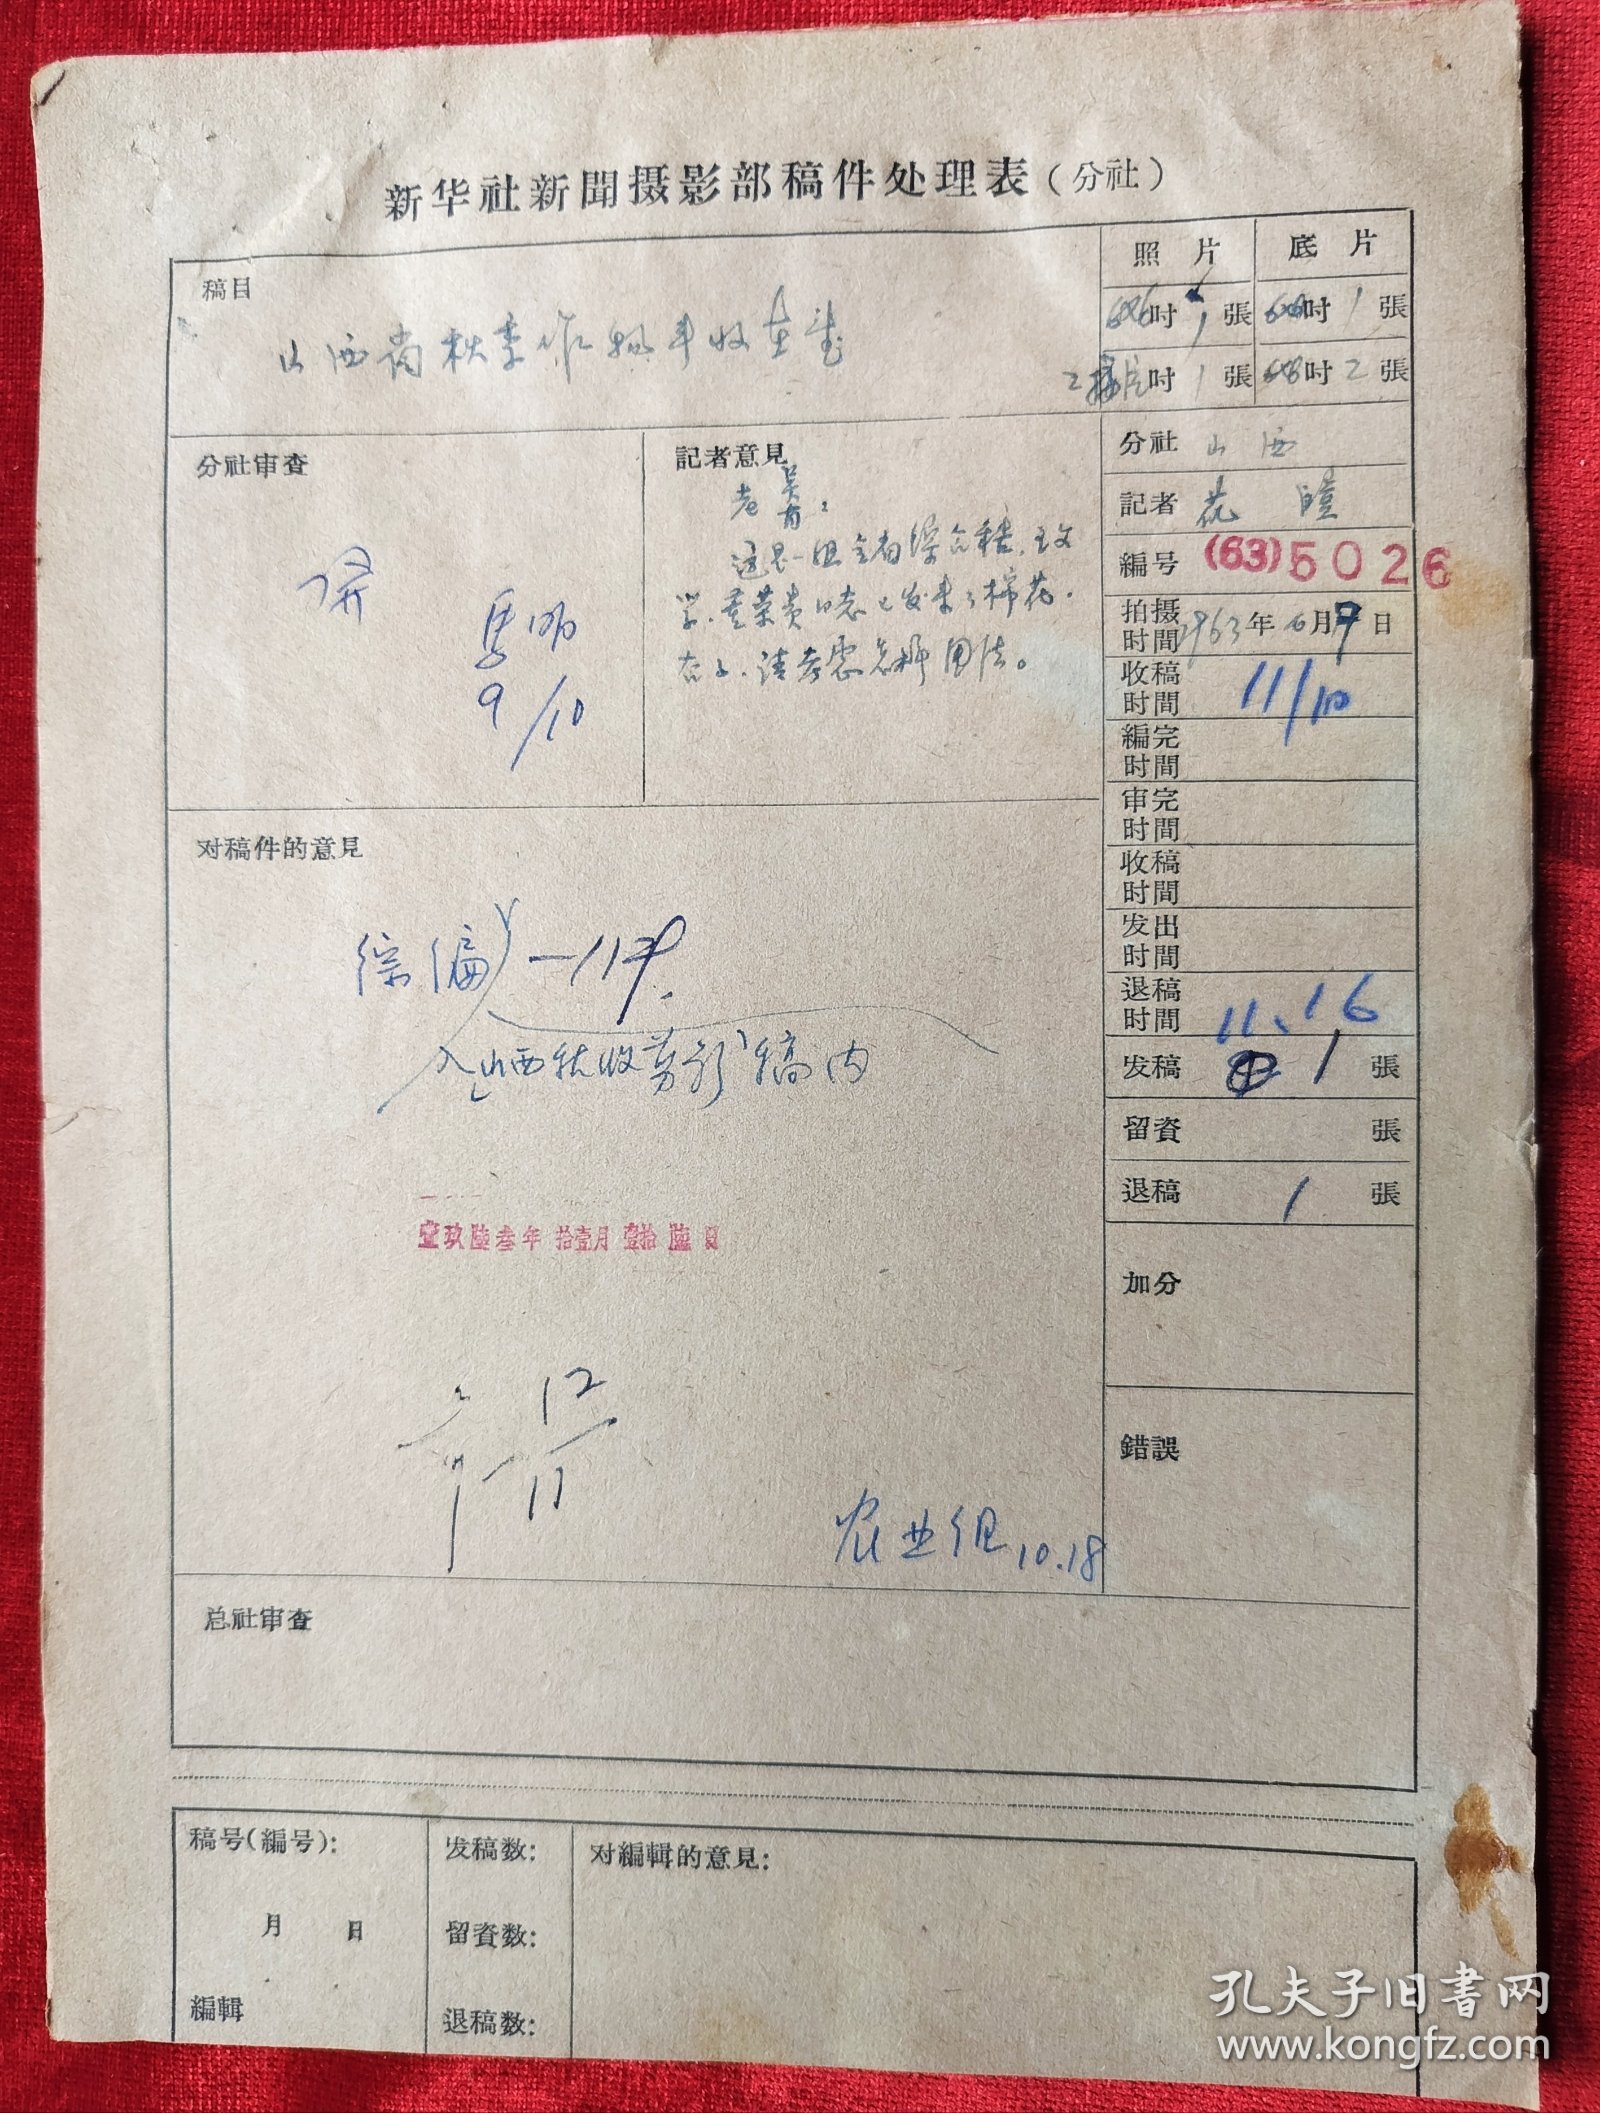 新华社新聞摄影部稿件处理表（分社）
稿目
山西省秋季作物丰收在望
照 片
底 片
吋 1 張
吋 1 張
吋 1 張
吋 2 張
分社审查
9/10
記者意見
这是一组
已发来了棉花.
请考虑怎样用法。
分社 山西
記者
編号 (63)5026
拍摄时間 1963年 月9日
收稿时間 11/10
編完时間
审完时間
收稿时間
发出时間
退稿时間 11.16
发稿 1 張
留資 張
退稿 1 張
加分
錯誤
对稿件的意見
综编
入山西秋收剪影稿内
壹玖陸叁年 拾壹月 壹拾陸日
12
11
农业组 10.18
总社审查
稿号(編号):
月 日
編輯
发稿数:
留資数:
退稿数:
对編輯的意見:
孔夫子旧书网
www.kongfz.com